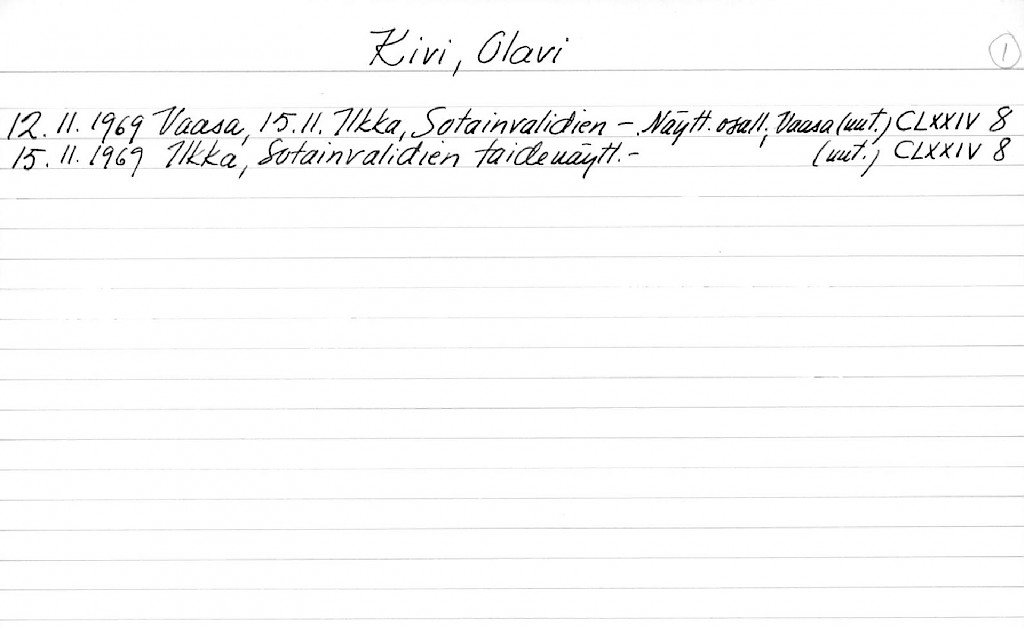 Kivi, Olavi
1
12.11.1969 Vaasa, 15.11. Ilkka, Sotainvalidien - Näytt. osall., Vaasa (uut.) CLXXIV 8
15.11.1969 Ilkka, Sotainvalidien taidenäytt.- (uut.) CLXXIV 8